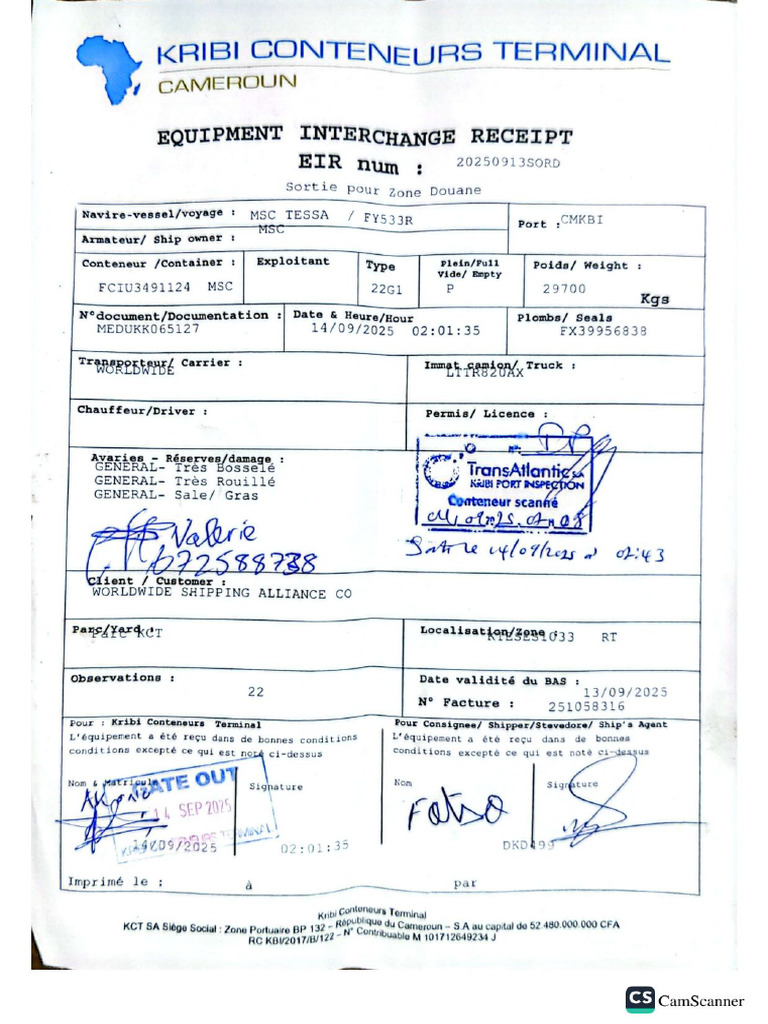 KRIBI CONTENEURS TERMINAL
CAMEROUN
EQUIPMENT INTERCHANGE RECEIPT
EIR num : 20250913SORD
Sortie pour Zone Douane
Navire-vessel/voyage : MSC TESSA / FY533R
Port : CMKBI
Armateur/ Ship owner : MSC
Conteneur /Container : Exploitant Type Plein/Full Vide/ Empty Poids/ Weight :
FCIU3491124 MSC 22G1 P 29700 Kgs
N°document/Documentation : Date & Heure/Hour Plombs/ Seals
MEDUKK065127 14/09/2025 02:01:35 FX39956838
Transporteur/ Carrier : Immat camion/ Truck :
WORLDWIDE LTTR820AX
Chauffeur/Driver : Permis/ Licence :
Avaries - Réserves/damage :
GENERAL- Très Bosselé
GENERAL- Très Rouillé
GENERAL- Sale/ Gras
TransAtlantic SA
KRIBI PORT INSPECTION
Conteneur scanné
Valerie
672588738
14/09/2025 02:43
Client / Customer :
WORLDWIDE SHIPPING ALLIANCE CO
Parc/Yard : Localisation/Zone :
Parc KCT RT
Observations : Date validité du BAS :
22 13/09/2025
N° Facture : 251058316
Pour : Kribi Conteneurs Terminal Pour Consignee/ Shipper/Stevedore/ Ship's Agent
L'équipement a été reçu dans de bonnes conditions L'équipement a été reçu dans de bonnes
conditions excepté ce qui est noté ci-dessus conditions excepté ce qui est noté ci-dessus
Nom & Matricule Signature Nom Signature
GATE OUT
14 SEP 2025
KRIBI CONTENEURS TERMINAL
Fotso
14/09/2025 02:01:35 DKD499
Imprimé le : à par
Kribi Conteneurs Terminal
KCT SA Siège Social : Zone Portuaire BP 132 – République du Cameroun – S.A au capital de 52.480.000.000 CFA
RC KBI/2017/B/122 – N° Contribuable M 101712649234 J
CS CamScanner